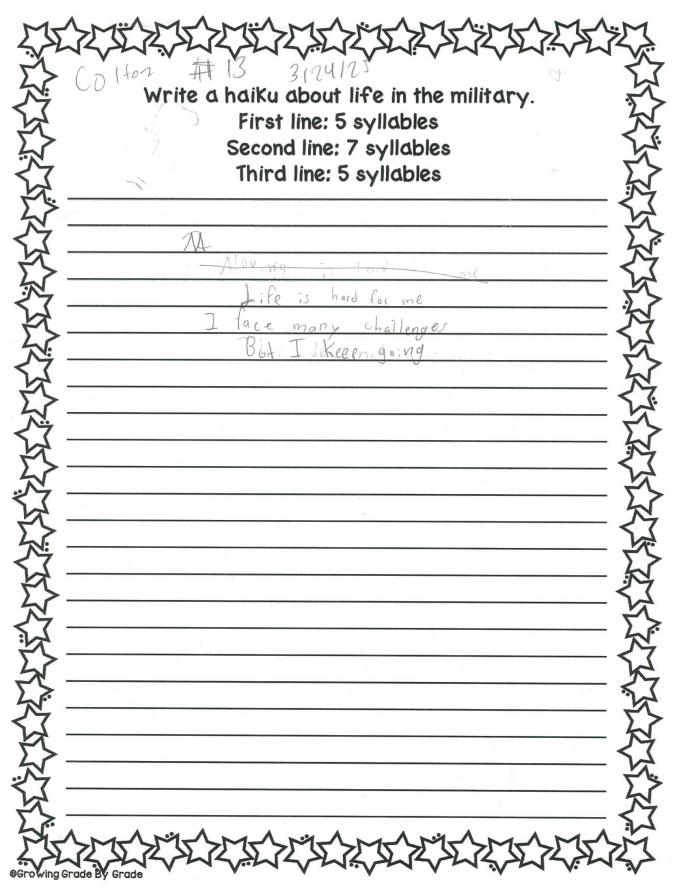 Colton #13 3/24/25
Write a haiku about life in the military.
First line: 5 syllables
Second line: 7 syllables
Third line: 5 syllables
Moving is hard
Life is hard for me
I face many challenges
But I keep going
©Growing Grade By Grade